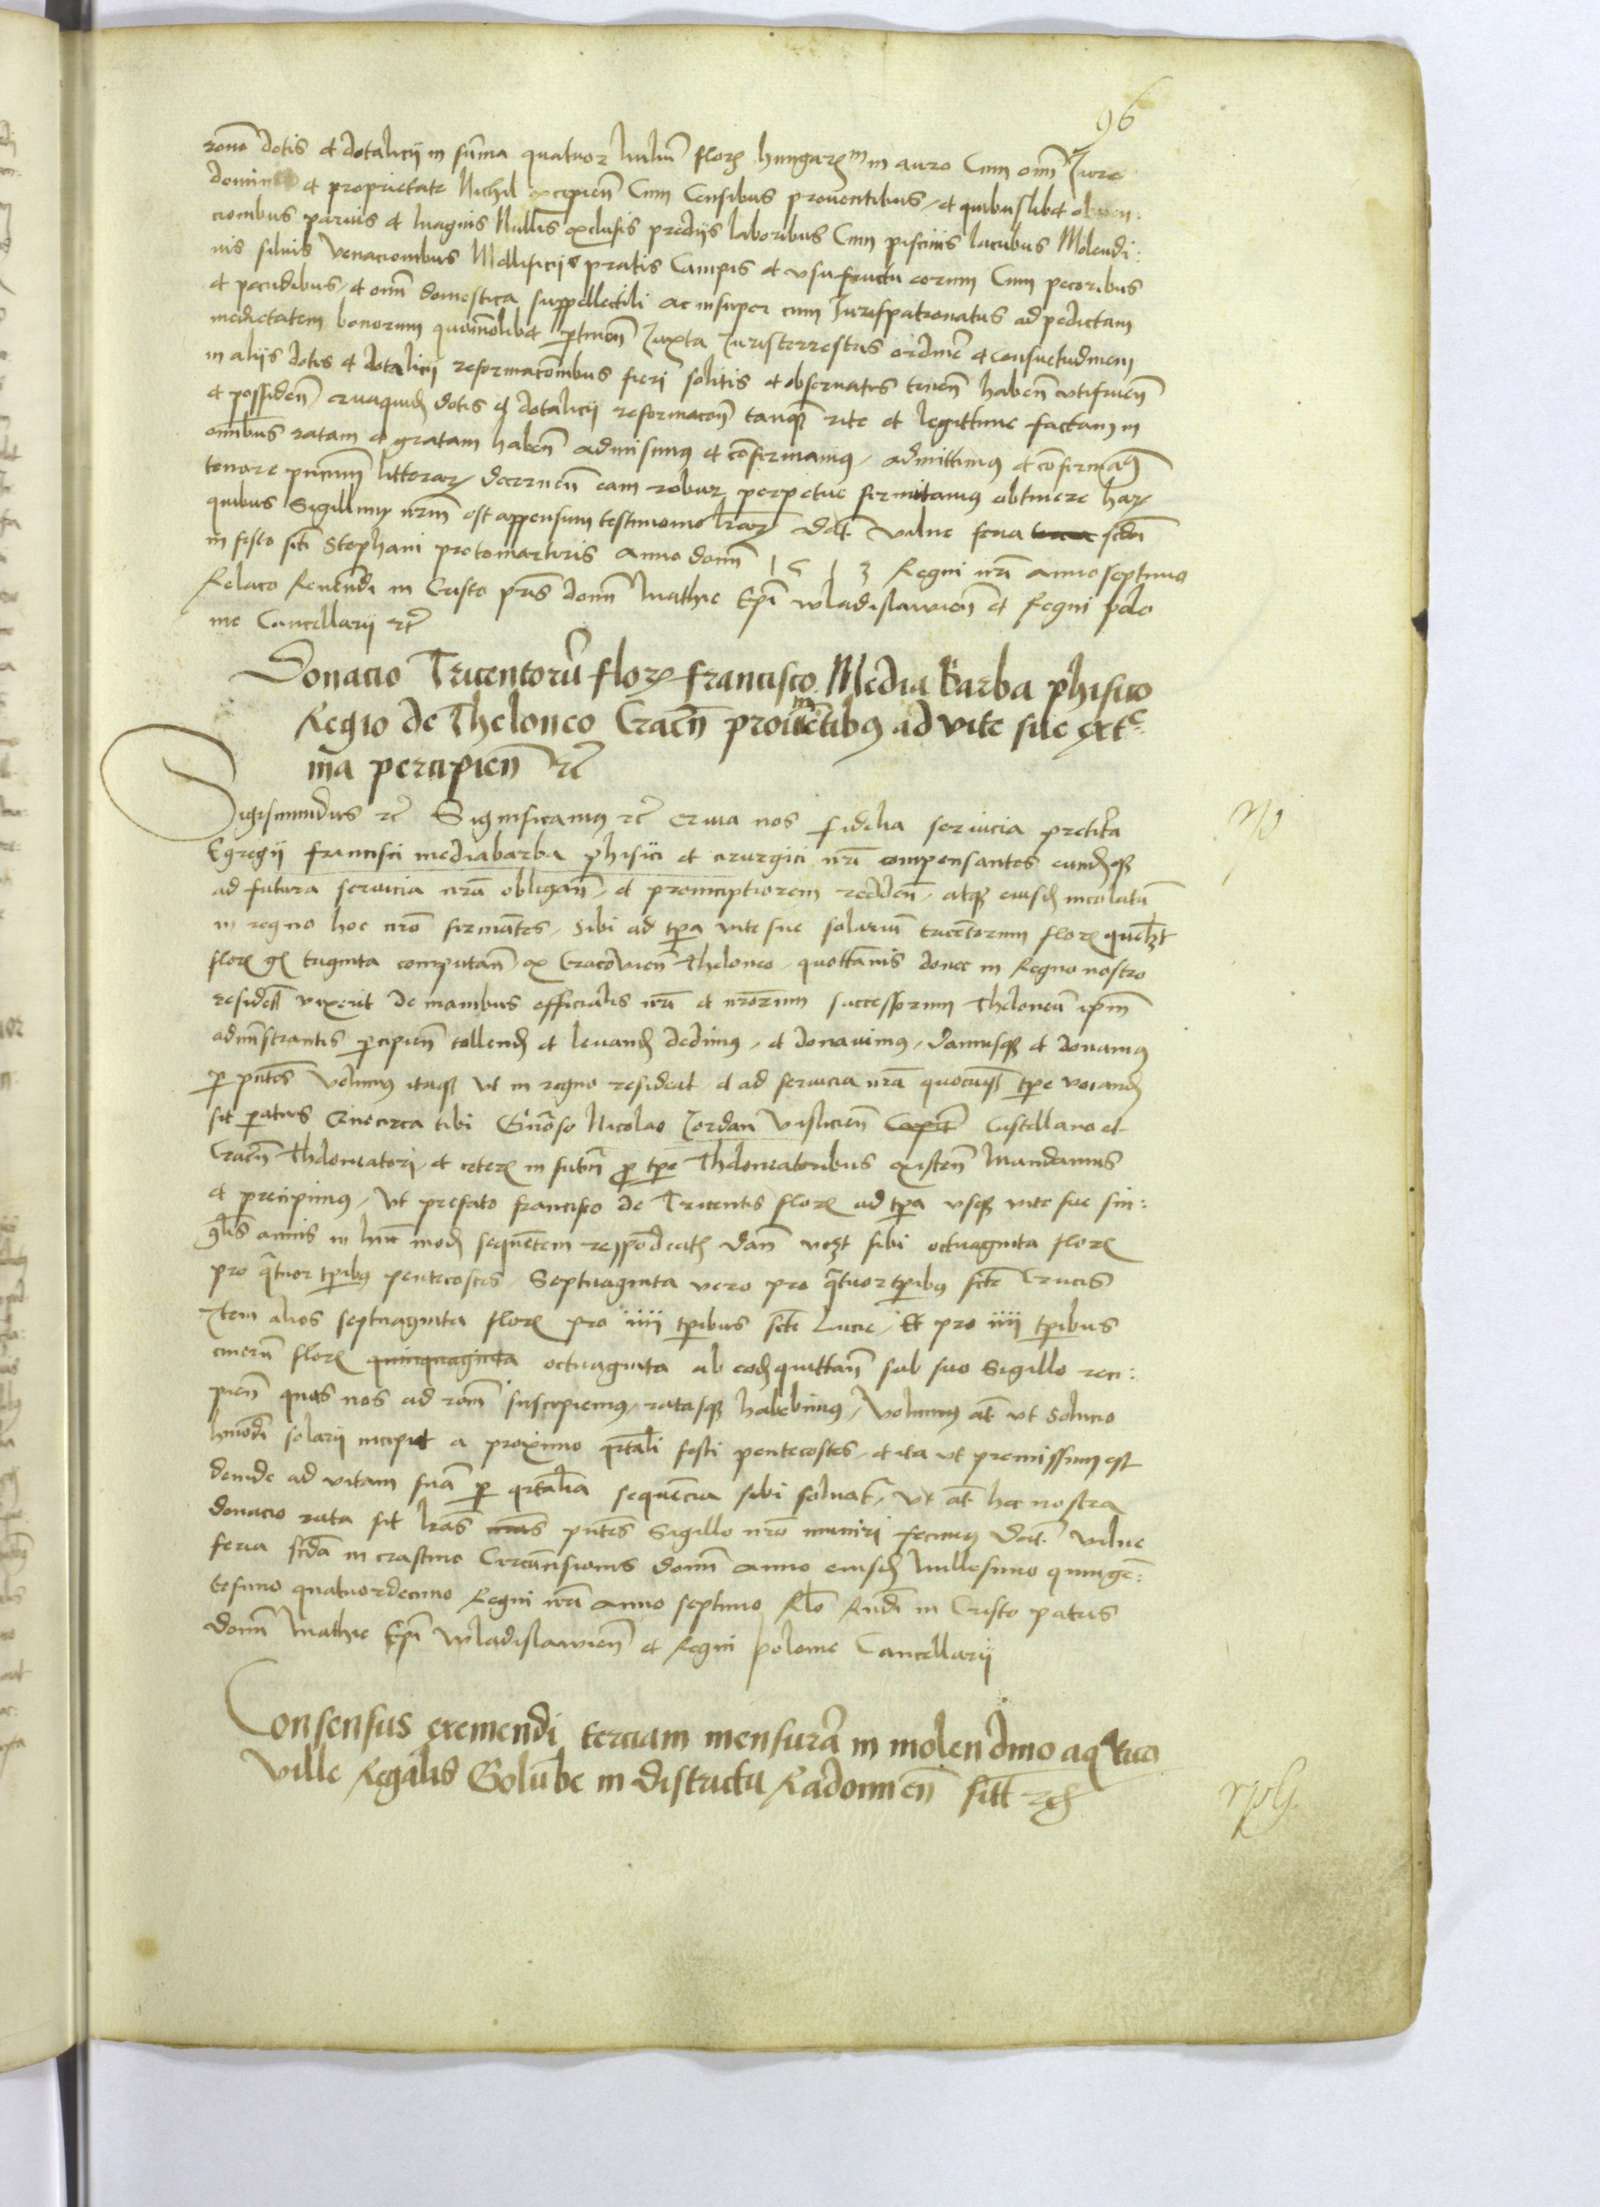 96
rone dotis et dotalicij in suma quatuor miliu florꝫ hungarꝫ in auro Cum omi Jure
dominio et proprietate Nichil excipien Cum Censibus prouentibus et quibuslibet obuen:
cionibus paruis et magnis Nullis exclusis predijs laboribus Cum piscinis lacubus Molendi:
nis siluis Venacionibus Mellificijs pratis Campis et vsufructu eorum Cum pecoribus
et pecudibus et omi domestica suppellectili ac insuper cum Jurispatronatus ad predictam
medietatem bonorum quomolibet ptinen Juxta Juristerrestris ordine et consuetudinem
in alijs dotis et dotalicij reformacoibus fieri solitis et obseruatis tenen haben vtifruen
et possiden cruaquidꝫ dotis et dotalicij reformacoem tanqꝫ rite et legittime factam in
omibus ratam et gratam haben admisimus et confirmamus, admittimus et confirmamꝰ
tenore pncium litterarꝫ decernen eam robur perpetue firmitatis obtinere harꝫ
quibus Sigillum nrm est appensum testimonio lrarꝫ Dat Vilne feria scda
in festo scti Stephani protomartiris Anno domi 1513 Regni nri Anno septimo
Relaco Reuendi in Cristo pris domi Mathie Epi wladislauien et Regni polo
nie Cancellarij etc
Donacio Tricentoru florꝫ francisco Media Barba phisico
Regio de Theloneo Cracn prouentibus ad vite sue ext
ma percipien etc
Sigismundus etc Significamus etc nos fidelia seruicia pretita
Egregij francisci mediabarba phisici et cirurgici nri compensantes eundemqꝫ
ad futura seruicia nra obligan, et prompciorem redden, atqꝫ eiusdꝫ incolatu
in regno hoc nro firmates, Sibi ad tpa vite sue solariu tricentorum florꝫ quemlꝫt
florꝫ gꝫ triginta computan ex Cracouien Theloneo quottannis donec in Regno nostro
residens vixerit de manibus officialis nri et nrorum successorum Theloneu ipm
adminstrantis pcipien tollendꝫ et leuandꝫ dedimus, et donauimus, damusqꝫ et donamus
p pntes Volumus itaqꝫ vt in regno resideat et ad seruicia nra quocuqꝫ tpe vocandꝫ
sit patus Quocirca tibi Gnroso Nicolao Jordan Vislicien Capit Castellano et
Cracn Theloneatori, et ceterꝫ in futur pro tpe Theloneatoribus existen Mandamus
et precipimus, vt prefato francisco de Tricentis florꝫ ad tpa vsqꝫ vite sue sin:
glis annis in huc modꝫ sequentem respondeatꝫ dan vcꝫt sibi octuaginta florꝫ
pro qtuor tpibus pentecostes Septuaginta vero pro qtuortpibus scte Crucis
Item alios septuaginta florꝫ pro iiii tpibus scte Lucie, Et pro iiii tpibus
cineru florꝫ quinquaginta octuaginta ab eodꝫ quittan sub suo Sigillo reci:
pien quas nos ad rone suscipiemus, ratasqꝫ habebimus, Volumus at vt Solucio
hmodi solarij incipiet a proximo qrtali festi pentecostes, et ita vt premissum est
deinde ad vitam sua p qrtalia sequencia sibi soluat, Vt at hec nostra
donacio rata sit lras nras pntes Sigillo nro muniri fecimus Dat Vilne
feria scda in crastino Circumsionis domi Anno eiusdꝫ Millesimo quinge:
tesimo quatuordecimo Regni nri Anno septimo Rlo Rndi in Cristo patris
domi Mathie Epi wladislauien et Regni polonie Cancellarij
Consensus exemendi terciam mensura in molendino aqtico
Ville Regalis Golube in districtu Radomien sitt